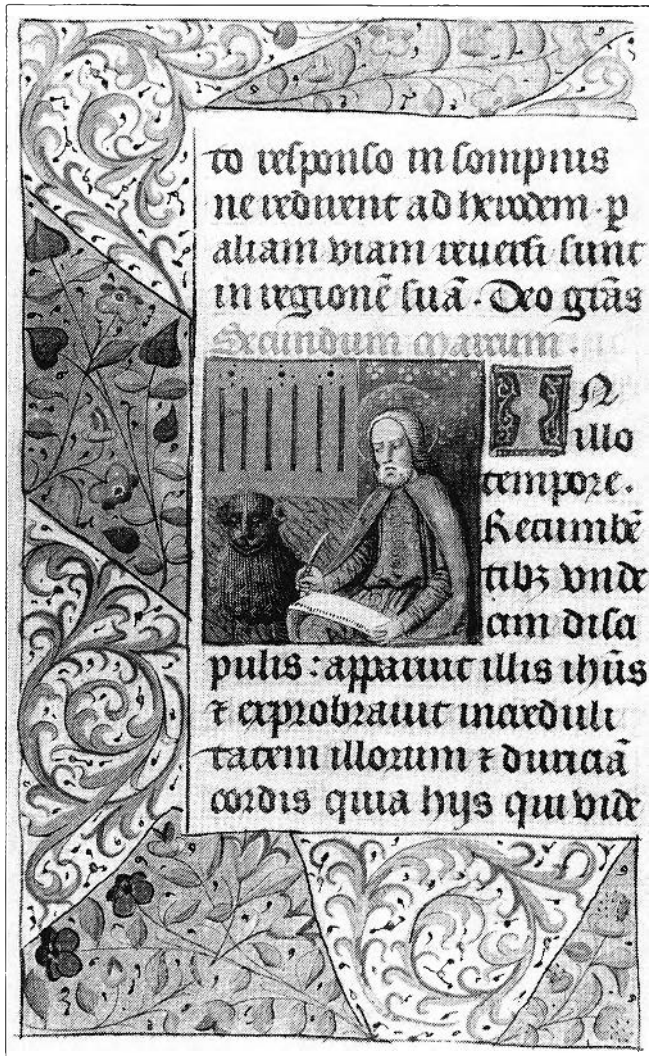 to responso in sompnis
ne redirent ad herodem · p
aliam viam reuersi sunt
in regionē suā · Deo grās
Secundum marcum ·
IN
illo
tempore ·
Recumbē
tibꝫ vnde
cim disci
pulis : apparuit illis ihūs
⁊ exprobrauit increduli
tatem illorum ⁊ duriciā
cordis quia hijs qui vide